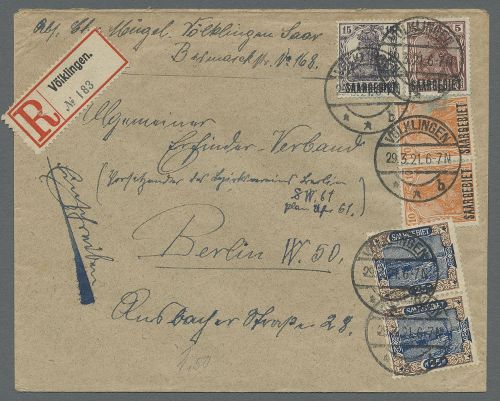 Abs. St. Mügel. Völklingen Saar
Bismarckstr. No 168.
R
Völklingen.
№ 183
15
5
SAARGEBIET
SAARGEBIET
VÖLKLINGEN
29.3.21.6-7N.
b
10
SAARGEBIET
SAARGEBIET
Allgemeiner
Erfinder-Verband
(Vorsitzender des Bezirksvereins Berlin)
SW. 61
61.
Einschreiben
Berlin W. 50.
Ansbacher Straße 28.
SAARGEBIET
SAARGEBIET
1.50